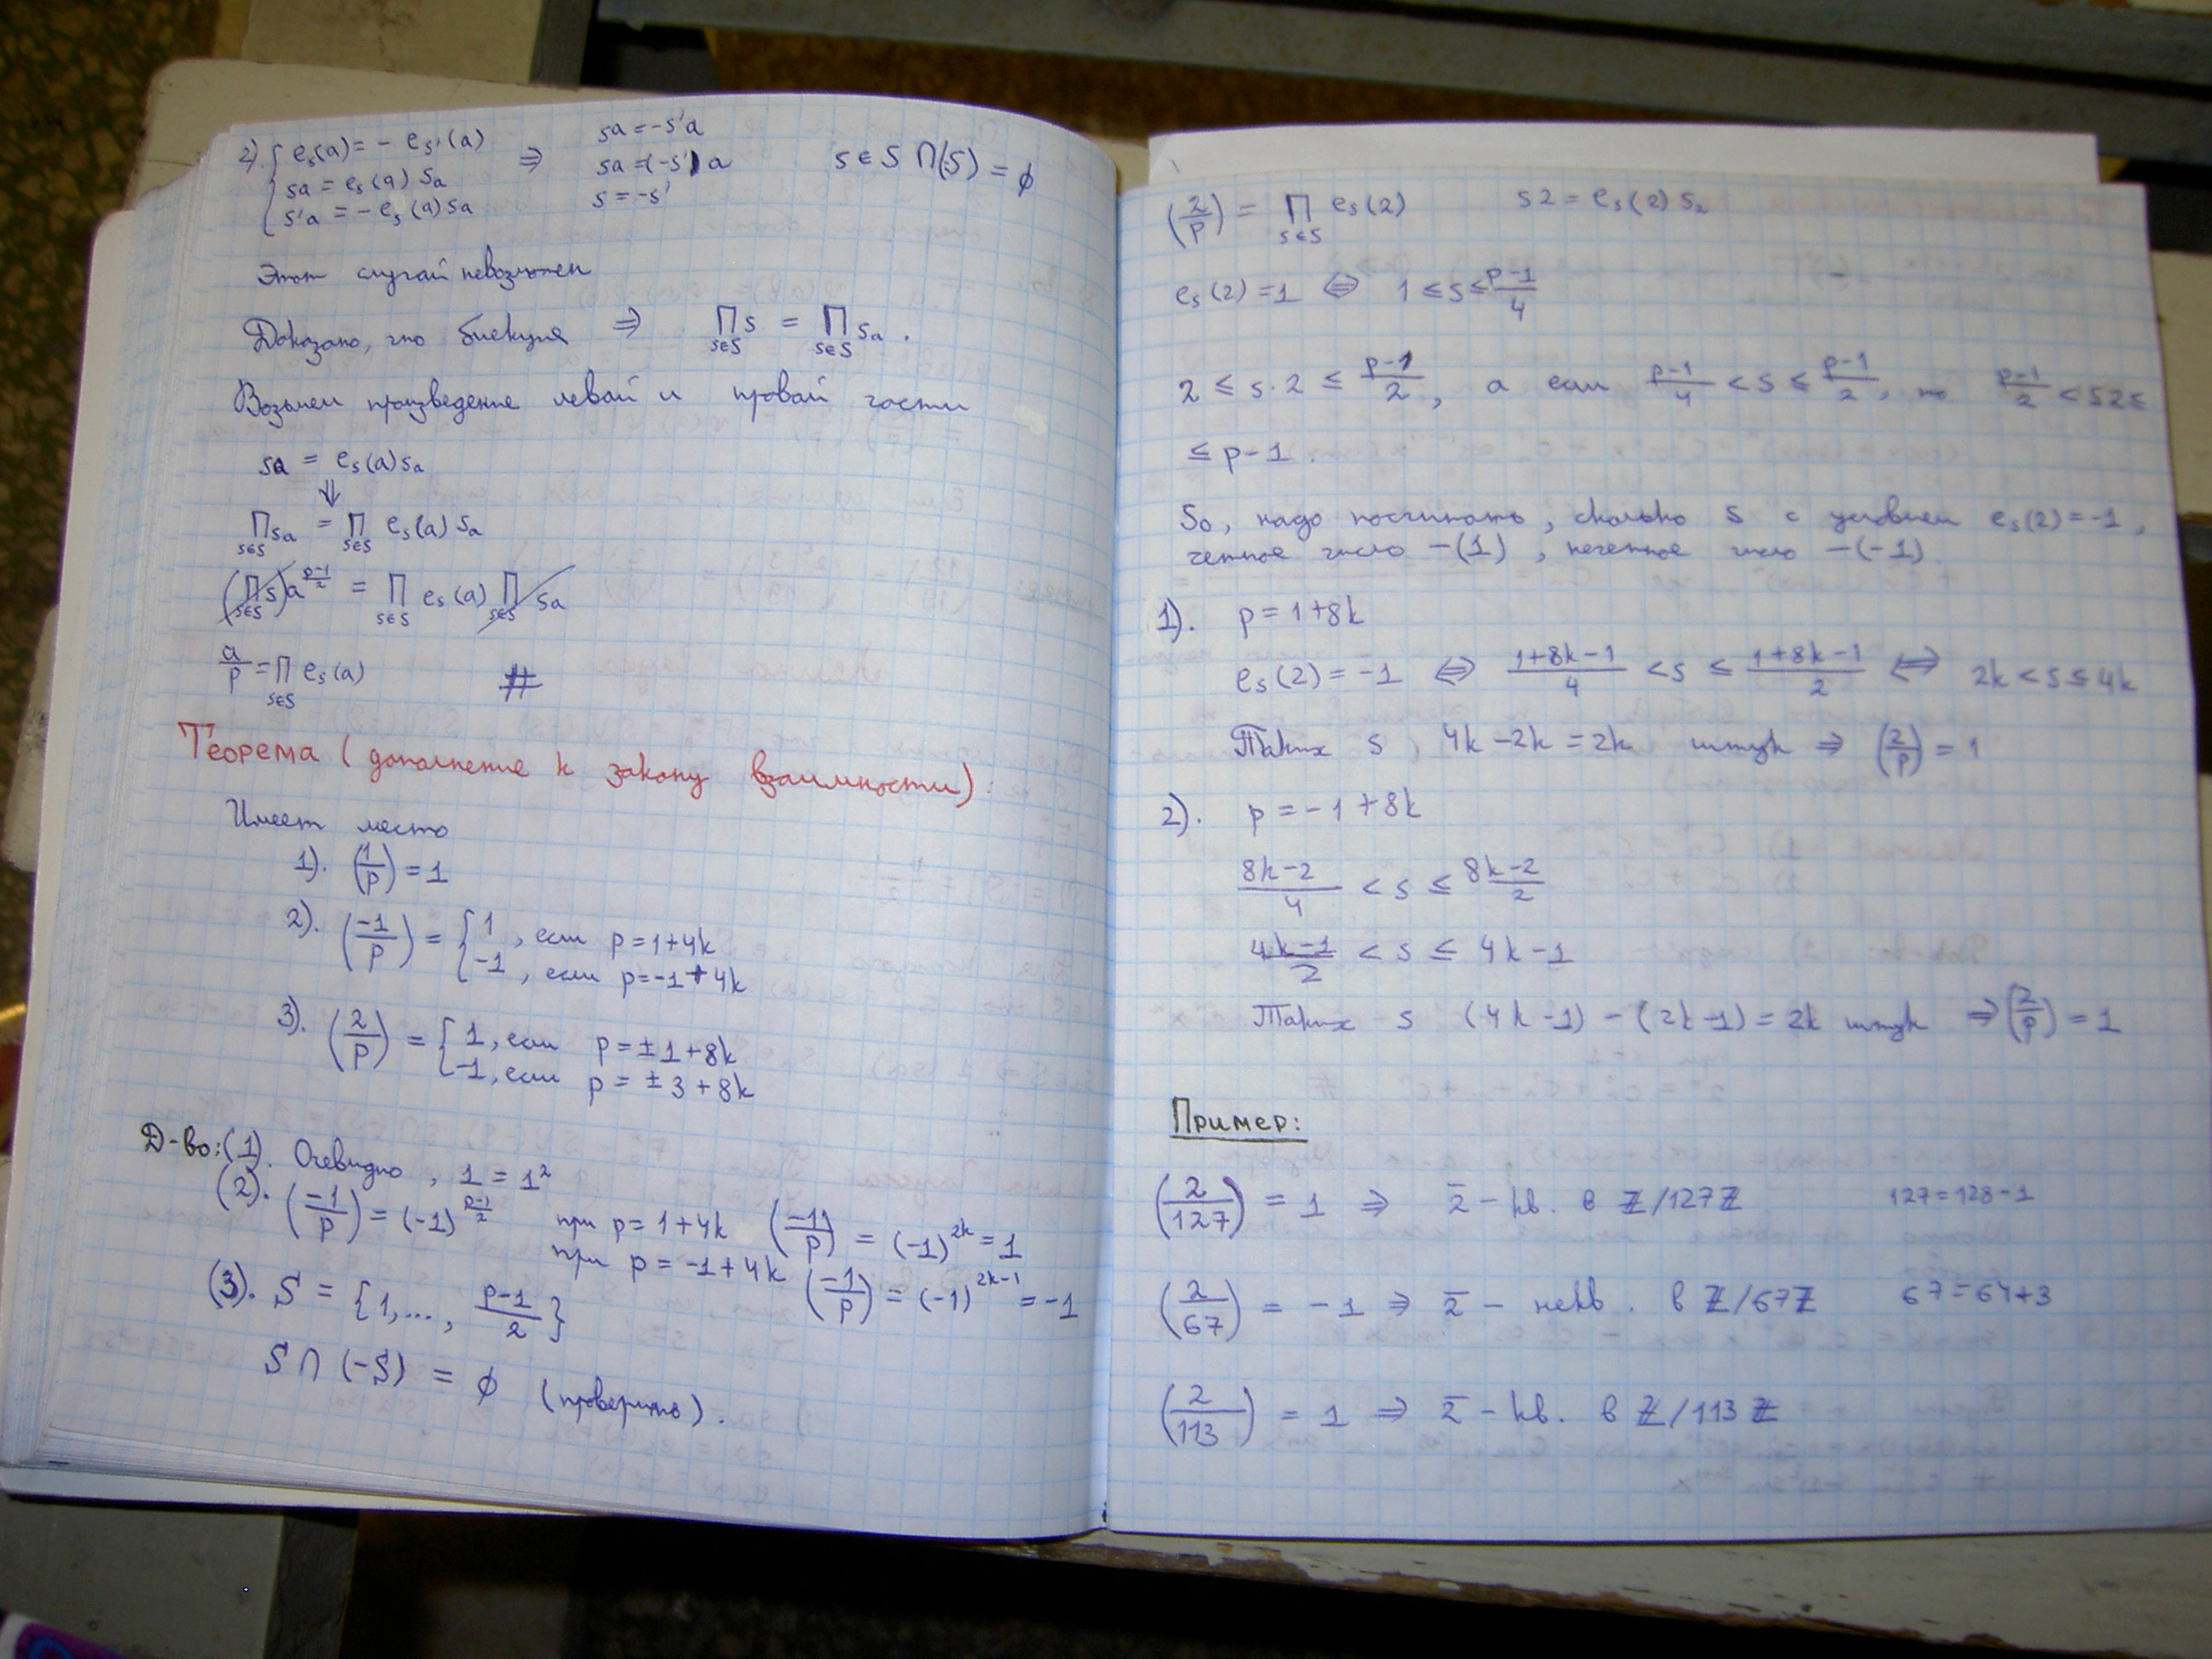 2). { e_s(a) = - e_s'(a) ⇒ sa = -s'a
sa = e_s(a) s_a sa = (-s') a s ∈ S ∩ (-S) = ϕ
s'a = - e_s(a) s_a s = -s'
Этот случай невозможен
Доказано, что биекция ⇒ ∏_{s∈S} s = ∏_{s∈S} s_a .
Возьмем произведение левой и правой части
sa = e_s(a) s_a
⇓
∏_{s∈S} sa = ∏_{s∈S} e_s(a) s_a
(∏_{s∈S} s) a^{(p-1)/2} = ∏_{s∈S} e_s(a) ∏_{s∈S} s_a
a/p = ∏_{s∈S} e_s(a) #
Теорема (дополнение к закону взаимности):
Имеет место
1). (1/p) = 1
2). (-1/p) = { 1 , если p = 1+4k
-1 , если p = -1+4k
3). (2/p) = { 1, если p = ±1+8k
-1, если p = ±3+8k
Д-во: (1). Очевидно , 1 = 1²
(2). (-1/p) = (-1)^{(p-1)/2} при p = 1+4k (-1/p) = (-1)^{2k} = 1
при p = -1+4k (-1/p) = (-1)^{2k-1} = -1
(3). S = {1,..., (p-1)/2}
S ∩ (-S) = ϕ (проверить).
(2/p) = ∏_{s∈S} e_s(2) s2 = e_s(2) s_2
e_s(2) = 1 ⇔ 1 ≤ s ≤ (p-1)/4
2 ≤ s·2 ≤ (p-1)/2 , а если (p-1)/4 < s ≤ (p-1)/2 , то (p-1)/2 < s2 ≤
≤ p-1 .
So, надо посчитать , сколько s с условием e_s(2) = -1 ,
четное число -(1) , нечетное число -(-1)
1). p = 1+8k
e_s(2) = -1 ⇔ (1+8k-1)/4 < s ≤ (1+8k-1)/2 ⇔ 2k < s ≤ 4k
Таких s 4k-2k = 2k штук ⇒ (2/p) = 1
2). p = -1+8k
(8k-2)/4 < s ≤ (8k-2)/2
(4k-1)/2 < s ≤ 4k-1
Таких s (4k-1) - (2k-1) = 2k штук ⇒ (2/p) = 1
Пример:
(2/127) = 1 ⇒ 2̄ - кв. в Z/127Z 127 = 128-1
(2/67) = -1 ⇒ 2̄ - некв. в Z/67Z 67 = 64+3
(2/113) = 1 ⇒ 2̄ - кв. в Z/113Z